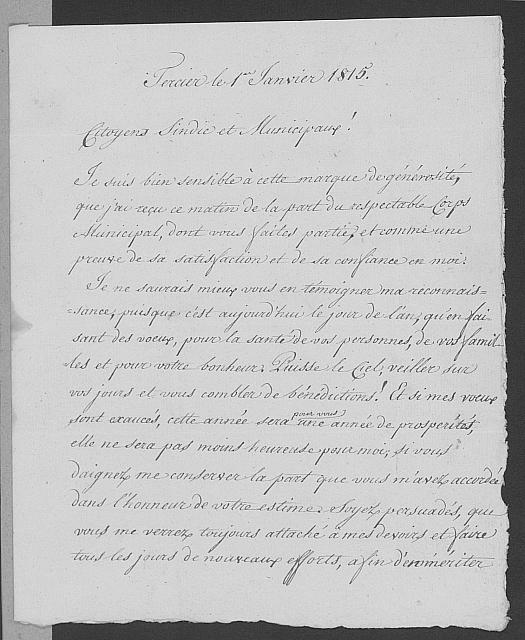 Tercier le 1er Janvier 1815.
Citoyens Sindic et Municipaux!
Je suis bien sensible à cette marque de générosité,
que j'ai reçu ce matin de la part du respectable Corps
Municipal, dont vous faites partie, et comme une
preuve de sa satisfaction et de sa confiance en moi.
Je ne saurais mieux vous en témoigner ma reconnais-
=sance, puisque c'est aujourd'hui le jour de l'an, qu'en fai
sant des voeux, pour la santé de vos personnes, de vos famil
les et pour votre bonheur. Puisse le Ciel, veiller sur
vos jours et vous combler de bénédictions! Et si mes voeux
sont exaucés, cette année sera pour vous une année de prospérités,
elle ne sera pas moins heureuse pour moi, si vous
daignez me conserver la part que vous m'avez accordée
dans l'honneur de votre estime. Soyez persuadés, que
vous me verrez toujours attaché à mes devoirs et faire
tous les jours de nouveaux efforts, afin d'en mériter